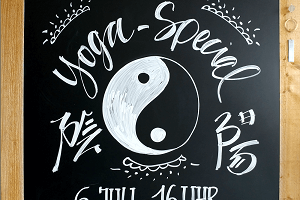 Yoga-Special
陰 陽
6. JULI 16 UHR